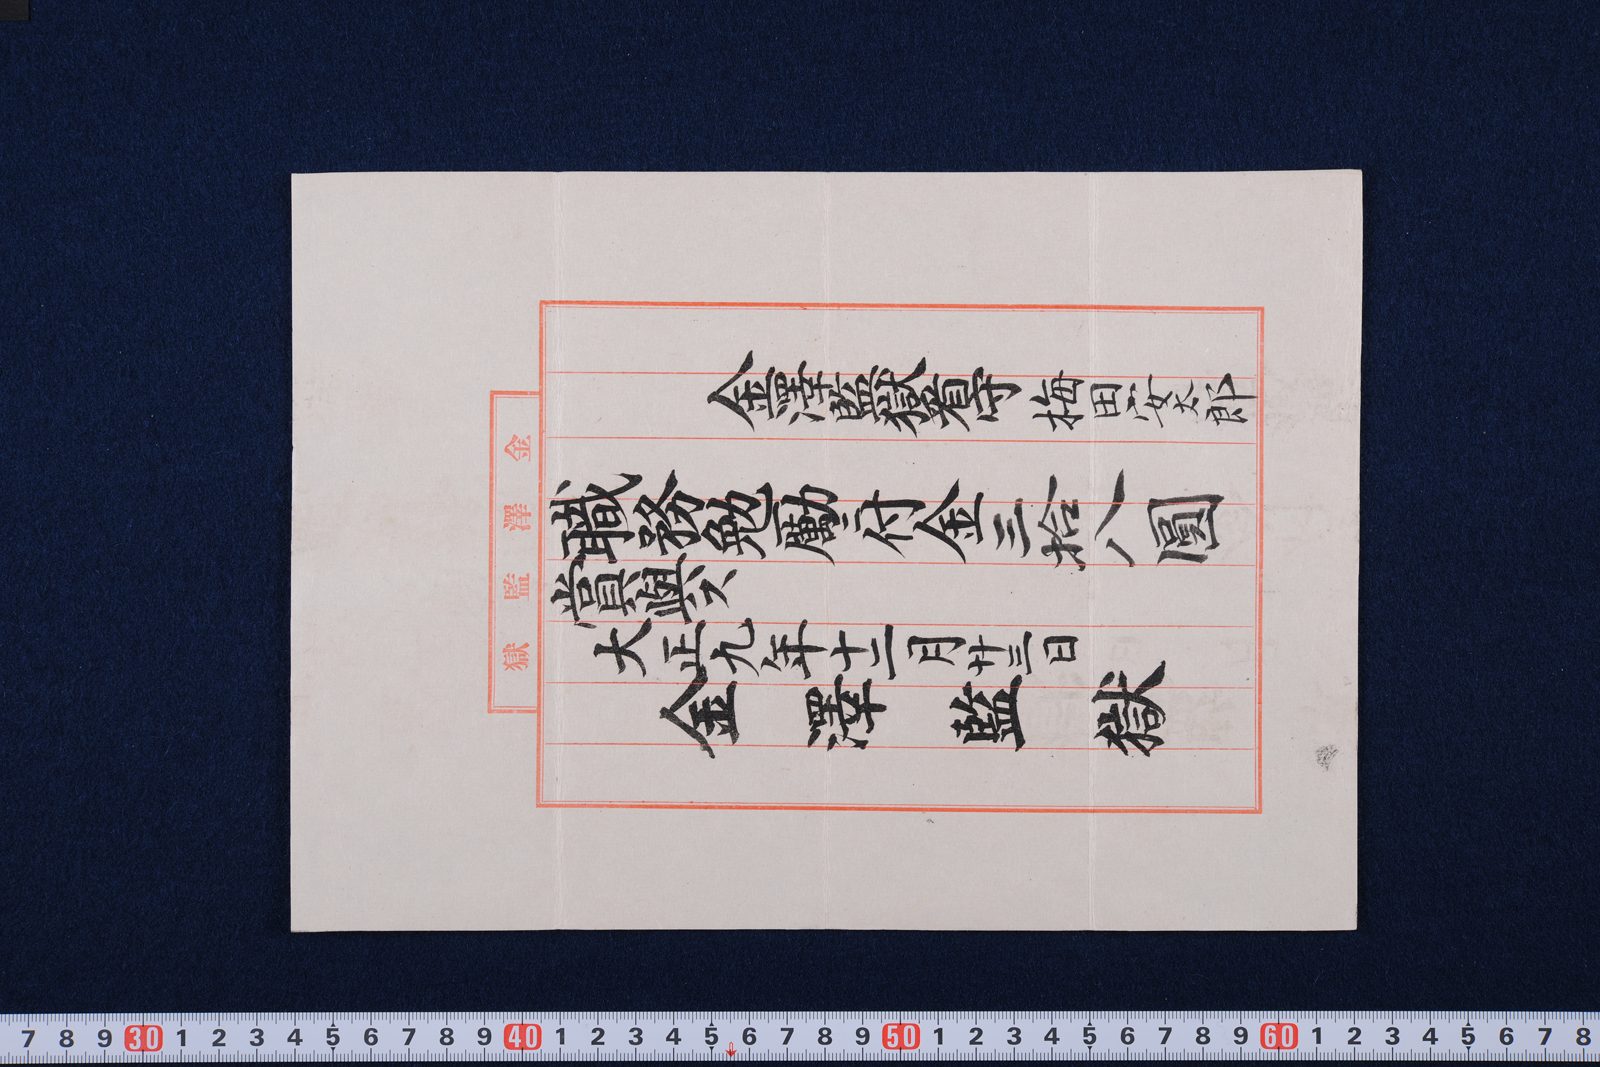 金澤監獄看守 梅田安太郎
職務勉勵ニ付金三拾八圓
賞與ス
大正九年十二月廿三日
金澤監獄
金澤監獄
7 8 9 30 1 2 3 4 5 6 7 8 9 40 1 2 3 4 5 6 7 8 9 50 1 2 3 4 5 6 7 8 9 60 1 2 3 4 5 6 7 8